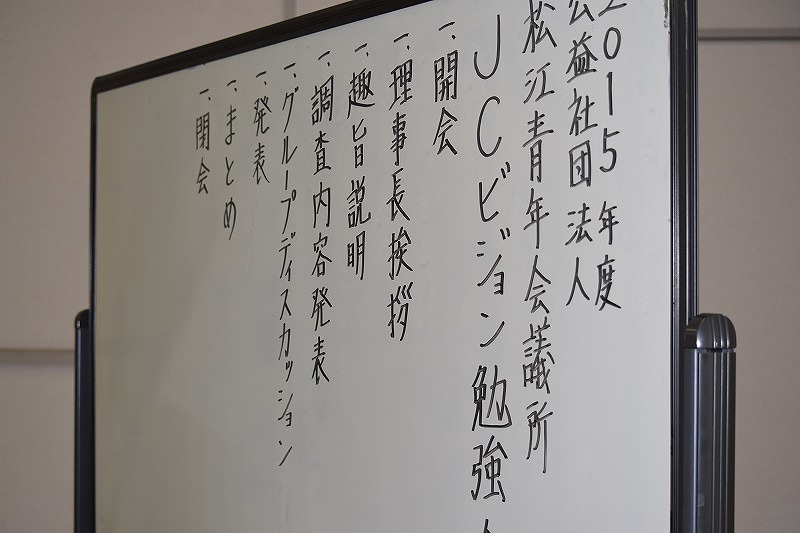 2015年度
公益社団法人
松江青年会議所
JCビジョン勉強
一、開会
一、理事長挨拶
一、趣旨説明
一、調査内容発表
一、グループディスカッション
一、発表
一、まとめ
一、閉会